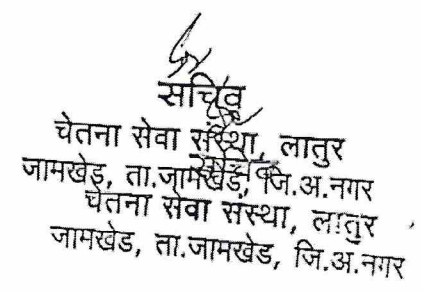 सचिव
चेतना सेवा संस्था, लातुर
जामखेड, ता.जामखेड, जि.अ.नगर
सचिव
चेतना सेवा संस्था, लातुर
जामखेड, ता.जामखेड, जि.अ.नगर